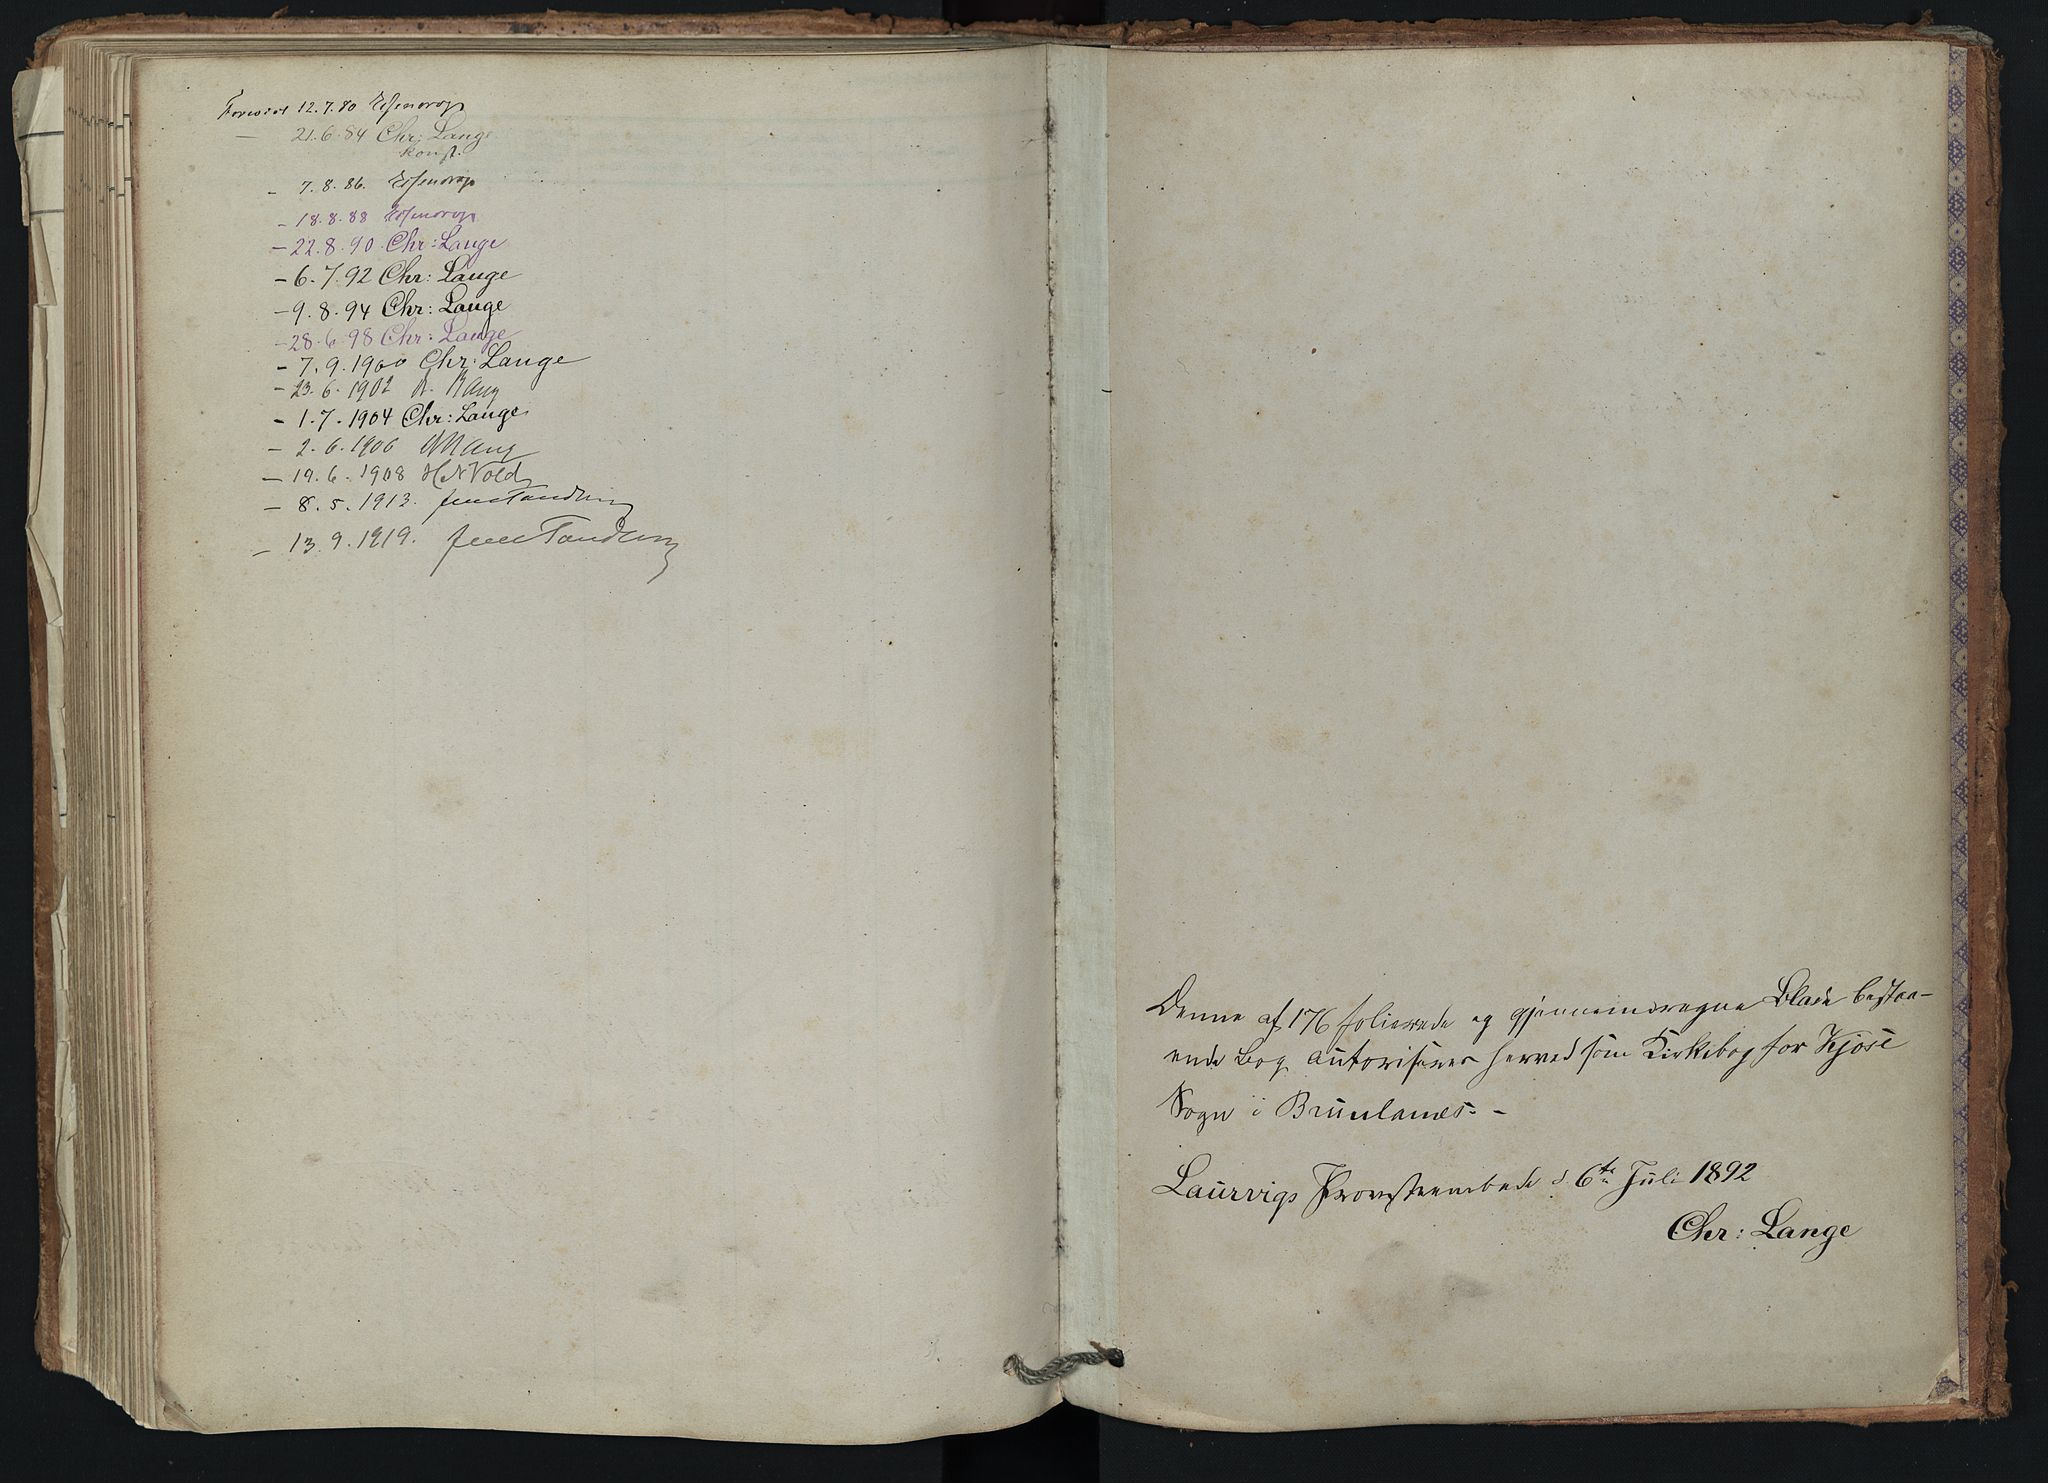 Forevist 12.7.80
— 21.6.84 Chr: Lange
Konst.
– 7.8.86.
– 18.8.88
– 22.8.90. Chr: Lange
– 6.7.92 Chr: Lange
– 9.8.94 Chr: Lange
– 28.6.98 Chr: Lange
– 7.9.1900 Chr: Lange
– 23.6.1902
– 1.7.1904 Chr: Lange
– 2.6.1906
– 19.6.1908 H N Vold
– 8.5.1913. Jens Tandberg
– 13.9.1919. Jens Tandberg
Denne af 176 folierede og gjennemdragne Blade bestaa-
ende Bog autoriseres herved som Kirkebog for Kjose
Sogn i Brunlanæs. –
Laurvigs Provsteembede d. 6te Juli 1892
Chr: Lange